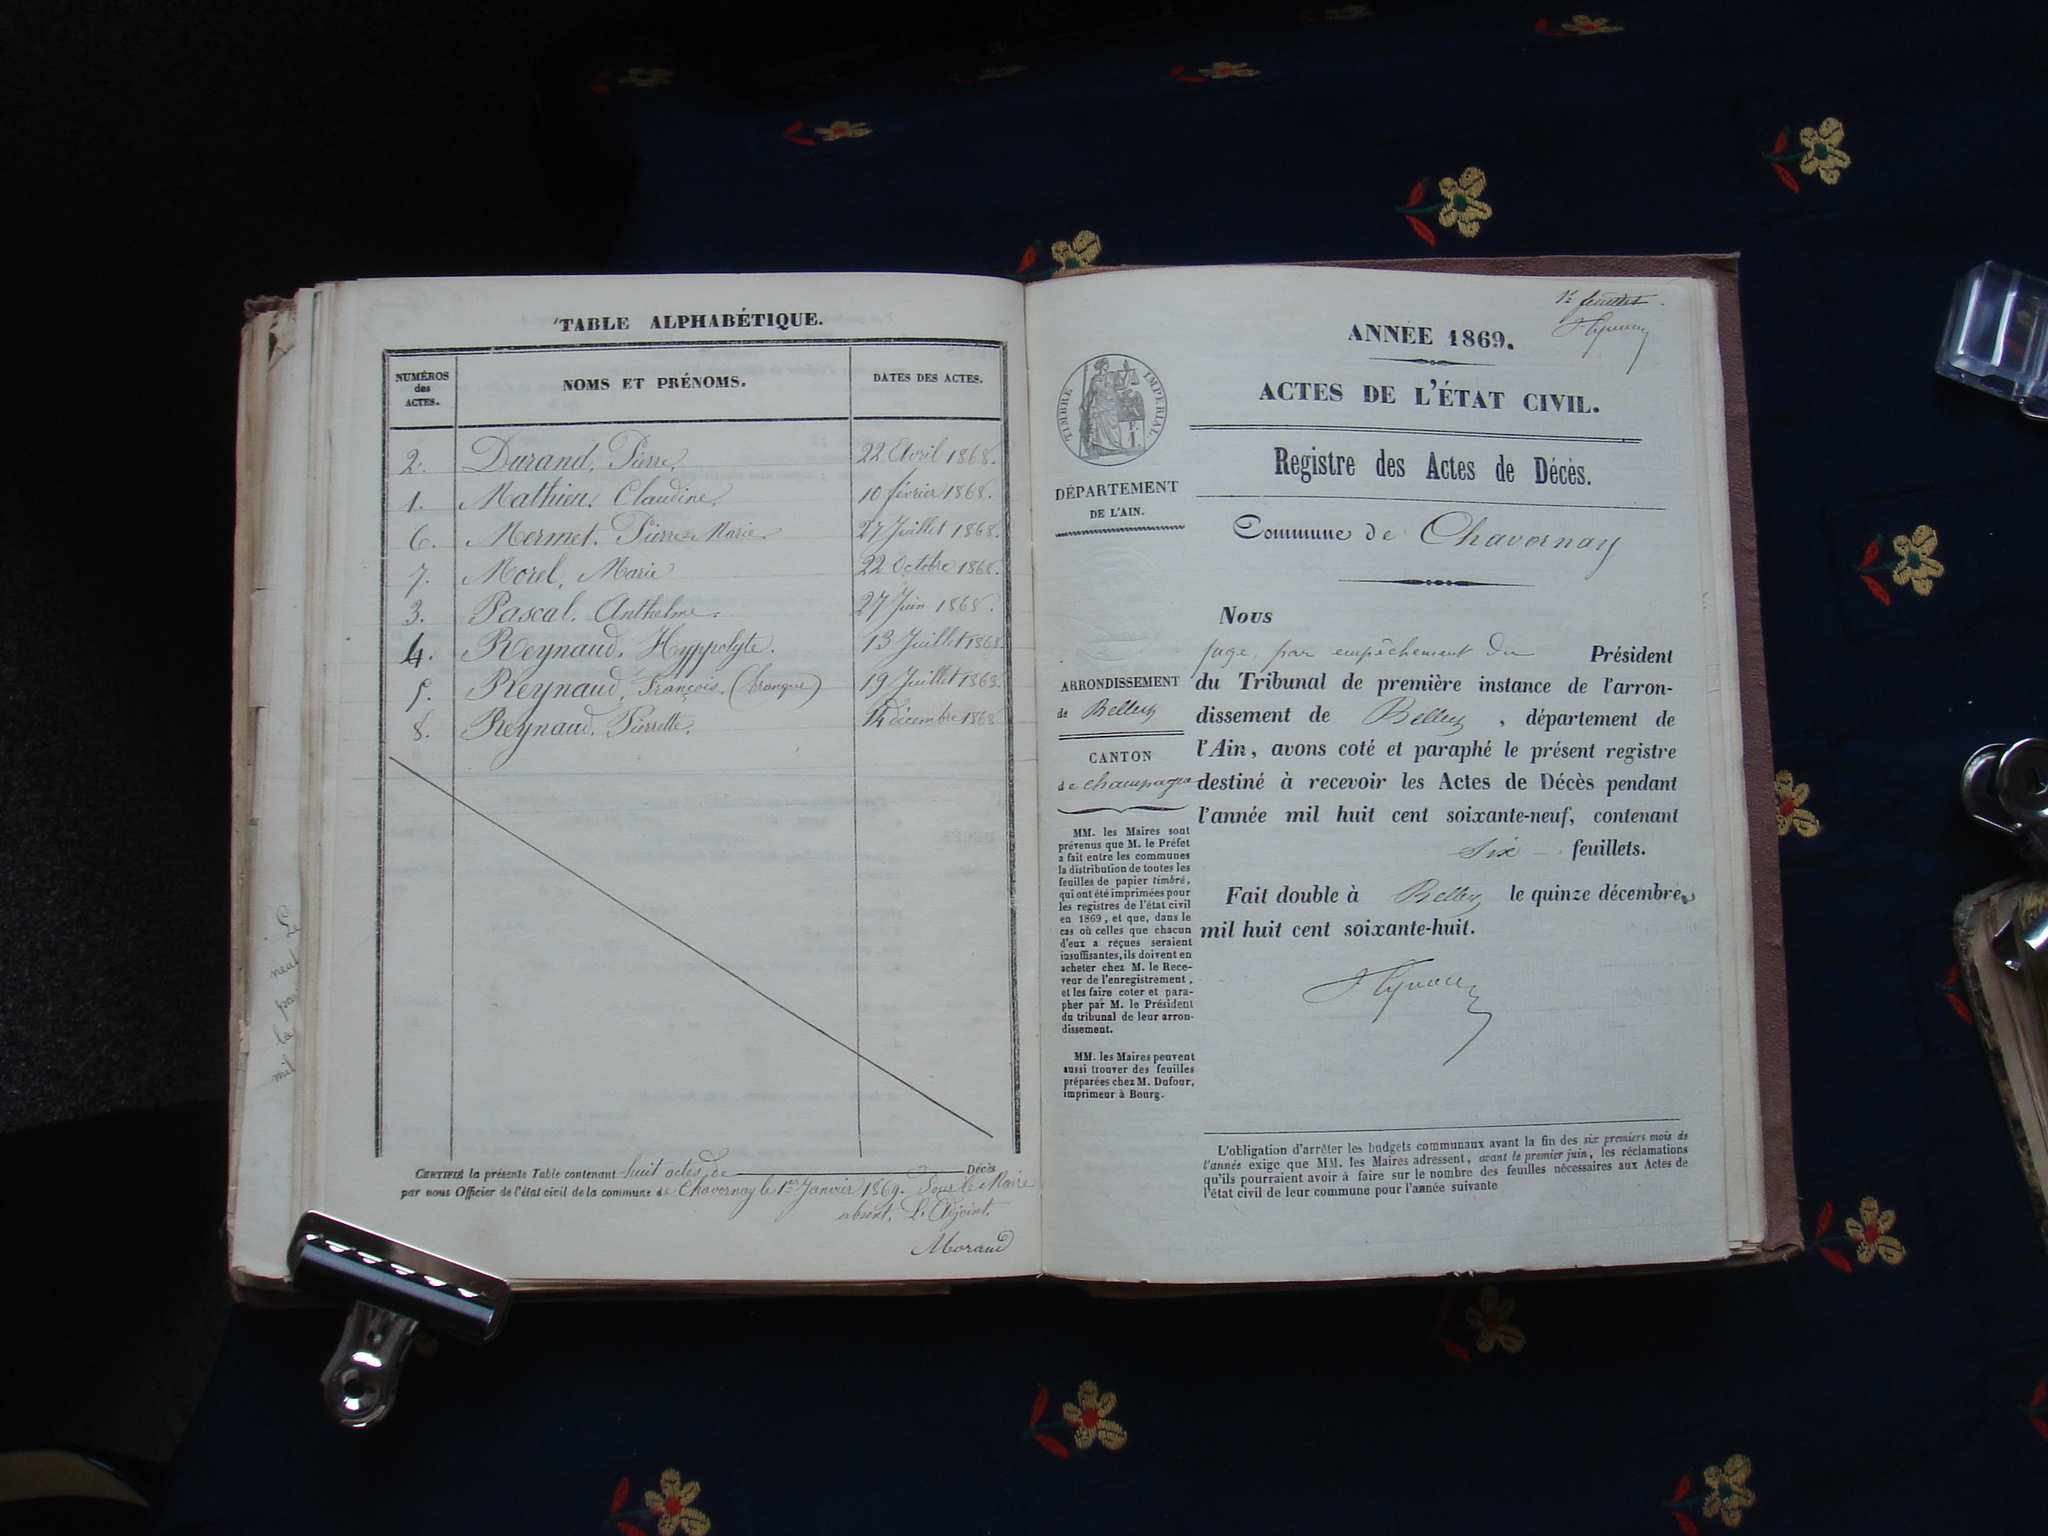 TABLE ALPHABÉTIQUE.
NUMÉROS
des
ACTES.
NOMS ET PRÉNOMS.
DATES DES ACTES.
2. Durand, Pierre. 22 Avril 1868.
1. Mathieu, Claudine. 10 février 1868.
6. Mermet. Pierre-Marie. 27 Juillet 1868.
7. Morel, Marie 22 Octobre 1868.
3. Pascal. Anthelme. 27 Juin 1868.
4. Reynaud. Hyppolyte. 13 Juillet 1868.
5. Reynaud, François, 19 Juillet 1868.
8. Reynaud. Pierrette. 14 décembre 1868
CERTIFIÉ la présente Table contenant huit actes de Décès
par nous Officier de l'état civil de la commune de Chavornay le 1er Janvier 1869. Pour le Maire
absent, L'Adjoint.
Moraud
neuf
mil
1er feuillet.
ANNÉE 1869.
TIMBRE IMPÉRIAL.
ACTES DE L'ÉTAT CIVIL.
Registre des Actes de Décès.
DÉPARTEMENT
DE L'AIN.
Commune de Chavornay
Nous
juge, par empêchement du Président
du Tribunal de première instance de l'arron-
dissement de Belley, département de
l'Ain, avons coté et paraphé le présent registre
destiné à recevoir les Actes de Décès pendant
l'année mil huit cent soixante-neuf, contenant
six feuillets.
Fait double à Belley le quinze décembre
mil huit cent soixante-huit.
ARRONDISSEMENT
de Belley
CANTON
de champagne
MM. les Maires sont
prévenus que M. le Préfet
a fait entre les communes
la distribution de toutes les
feuilles de papier timbré,
qui ont été imprimées pour
les registres de l'état civil
en 1869, et que, dans le
cas où celles que chacun
d'eux a reçues seraient
insuffisantes, ils doivent en
acheter chez M. le Rece-
veur de l'enregistrement,
et les faire coter et para-
pher par M. le Président
du tribunal de leur arron-
dissement.
MM. les Maires peuvent
aussi trouver des feuilles
préparées chez M. Dufour,
imprimeur à Bourg.
L'obligation d'arrêter les budgets communaux avant la fin des six premiers mois de
l'année exige que MM. les Maires adressent, avant le premier juin, les réclamations
qu'ils pourraient avoir à faire sur le nombre des feuilles nécessaires aux Actes de
l'état civil de leur commune pour l'année suivante